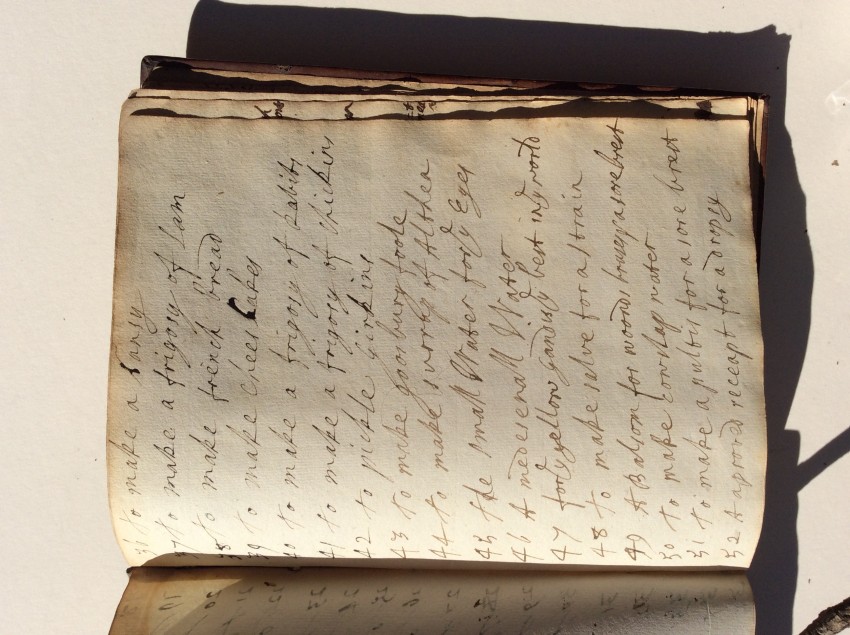 36 to make a tansy
37 to make a frigosy of Lam
38 to make french bread
39 to make Chees Cakes
40 to make a frigosy of Rabits
41 to make a frigosy of Chickins
42 to pickle girkins
43 to make goosbury foole
44 to make surrop of Althea
45 the small Water for yᵉ Eyes
46 A medesenall Water
47 for yᵉ yellow jandis yᵉ best in yᵉ world
48 to make salve for a strain
49 A Balsom for woond bruse a sore brest
50 to make cowslap water
51 to make a pultis for a sore brest
52 A aproved receapt for a dropsy